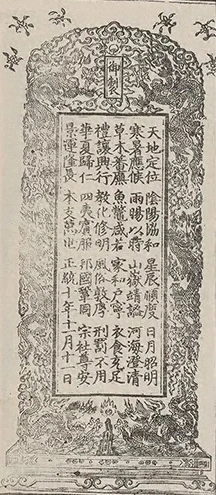 御製
天地定位 陰陽恊和 星辰順度 日月昭明
寒暑應候 雨暘以時 山嶽靖謐 河海澄清
草木蕃廡 魚鱉咸若 家和戶寧 衣食充足
禮讓興行 教化修明 風俗敦厚 刑罰不用
華夏歸仁 四夷賓服 邦國鞏固 宗社尊安
景運隆長 本支萬世 正統十年十一月十一日